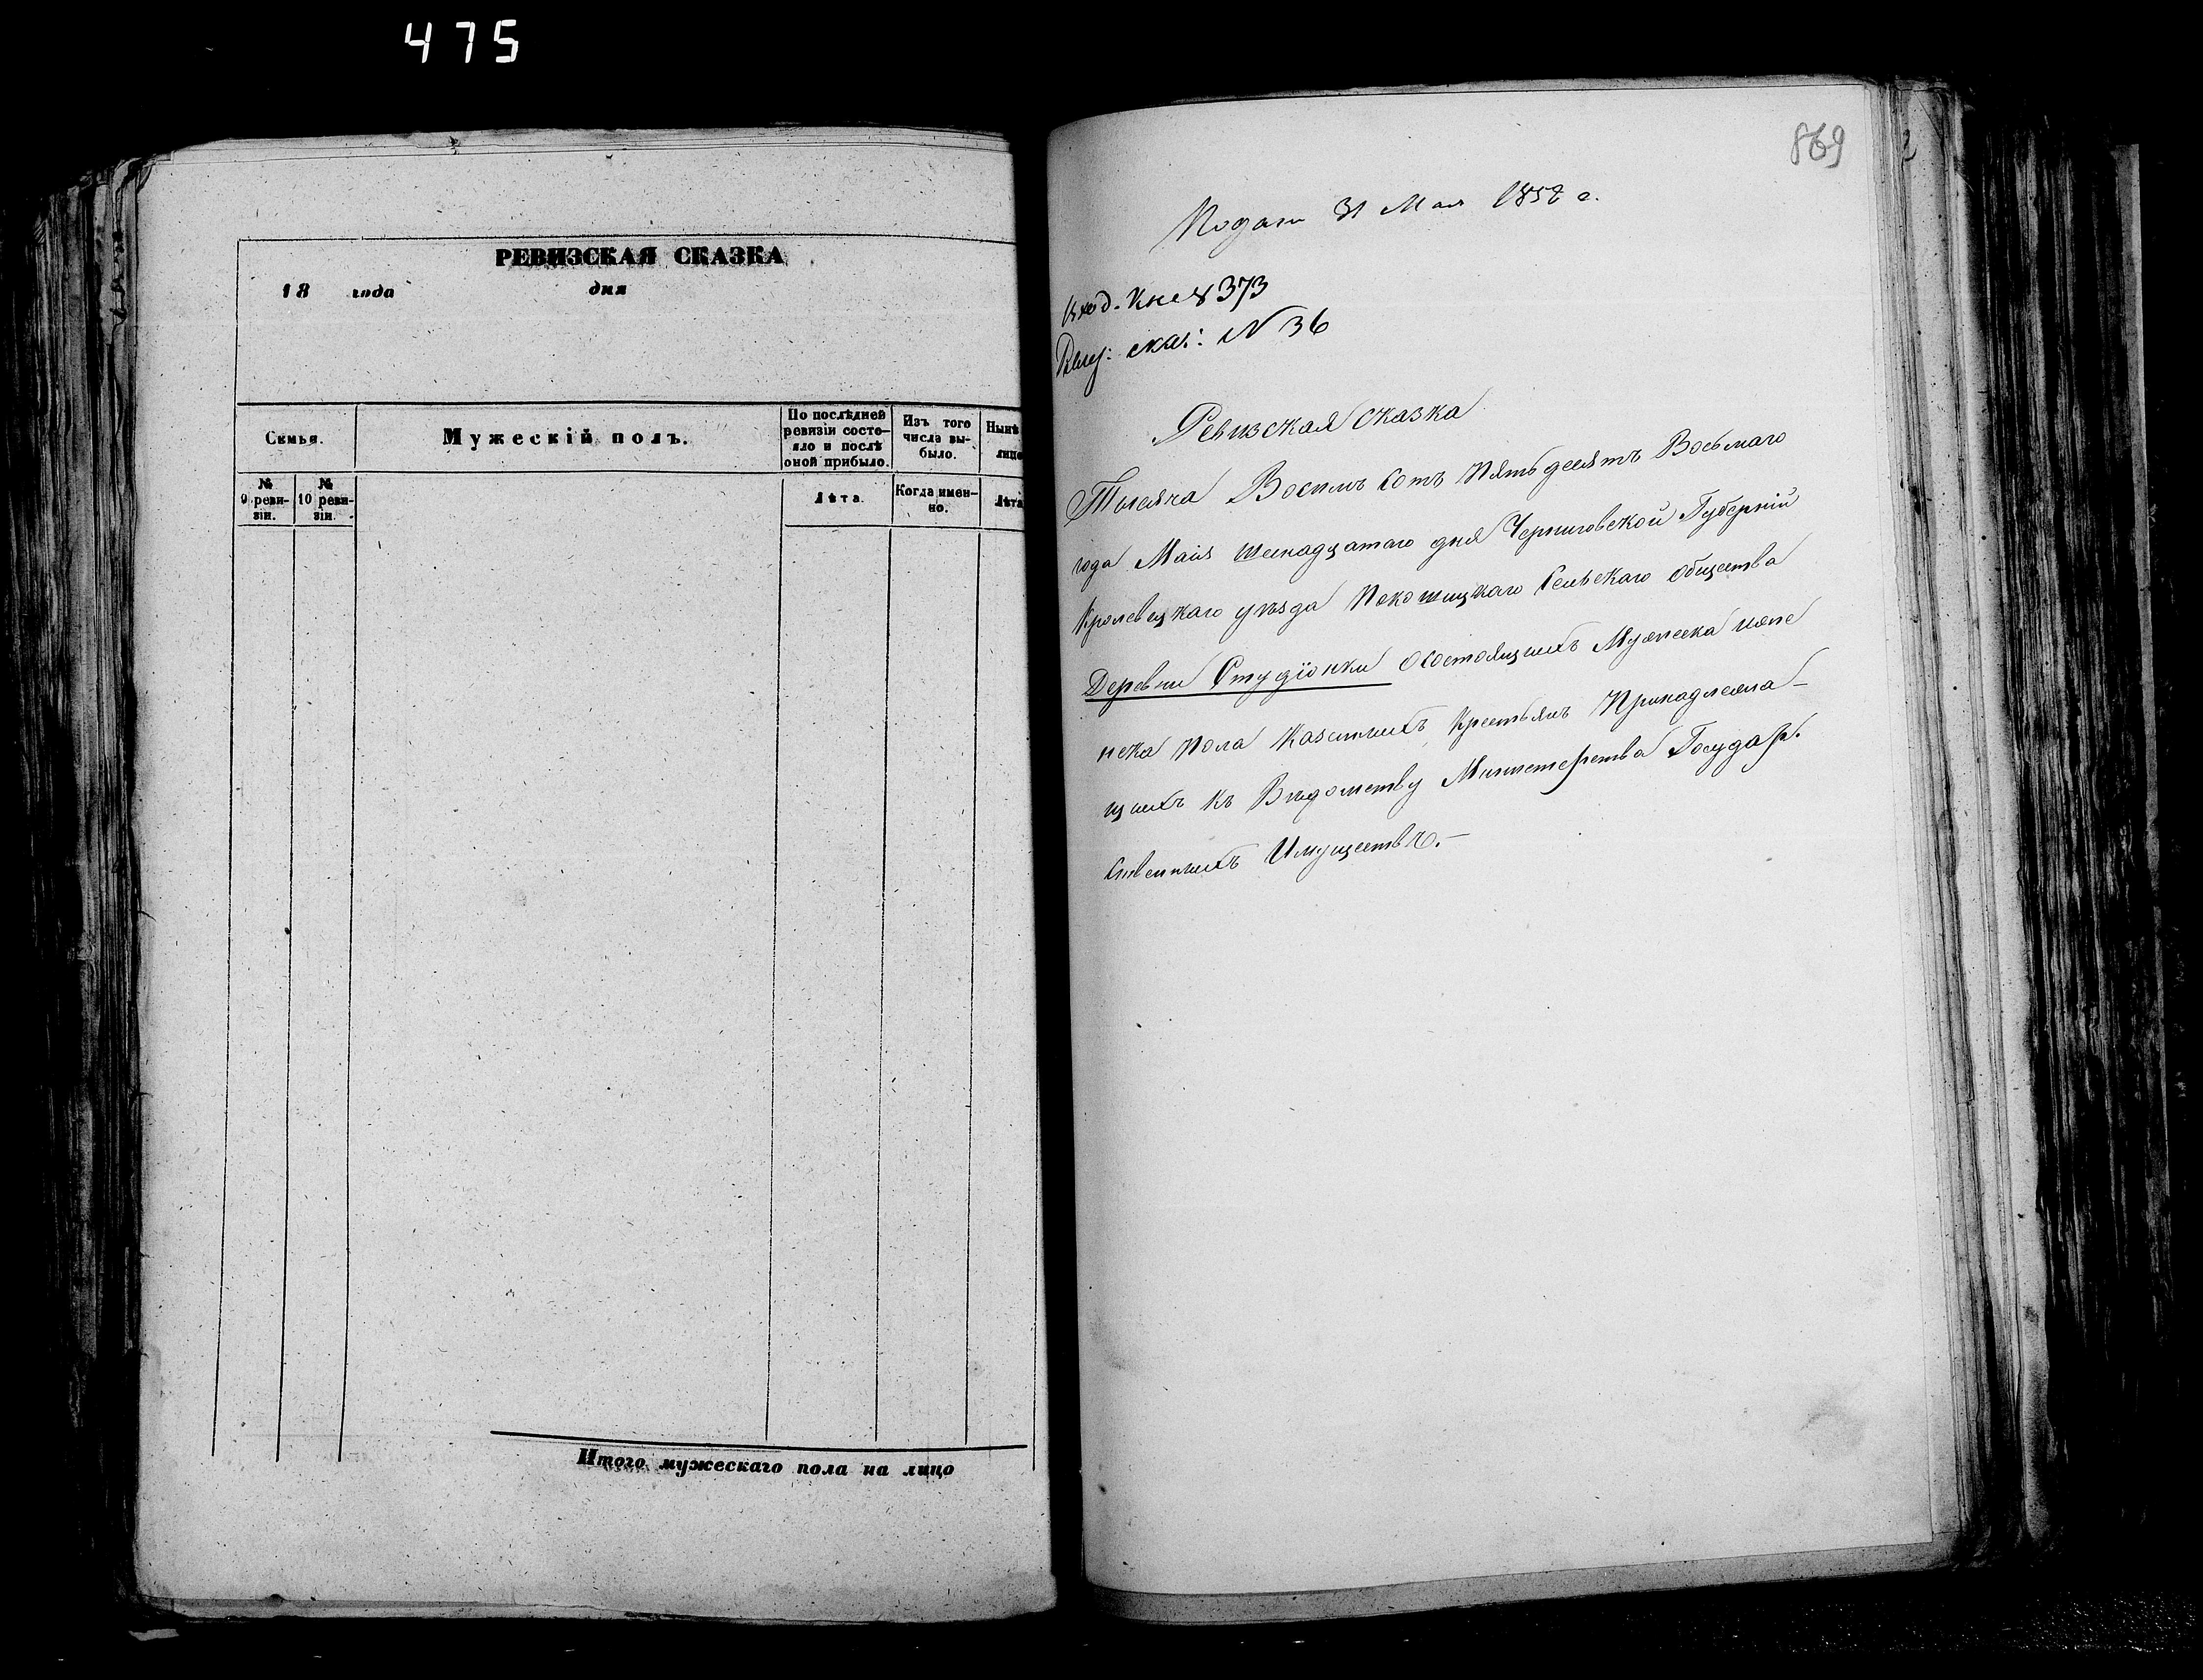 475
РЕВИЗСКАЯ СКАЗКА
18 года дня
Семья.
Мужескій полъ.
По послѣдней ревизіи состояло и послѣ оной прибыло.
Изъ того числа выбыло.
Нынѣ лицо
№ 9 ревизіи.
№ 10 ревизіи.
Лѣта.
Когда именно.
Лѣта
Итого мужескаго пола на лицо
869
Подана 31 Мая 1858 г.
Вход. Кн. 373
сказ: N 36
Ревизская сказка
Тысяча Восемь Сотъ Пятьдесятъ Восьмаго
года Маія шеснадцатаго дня Черниговской Губерніи
Кролевецкаго уѣзда Покошицкаго Сельскаго Общества
Деревни Студіонки О состоящихъ Мужеска и женс
неска Пола Казенныхъ Крестьянъ Принадлежа-
щихъ къ Вѣдомству Министерства Государ.
ственныхъ Имуществъ.-